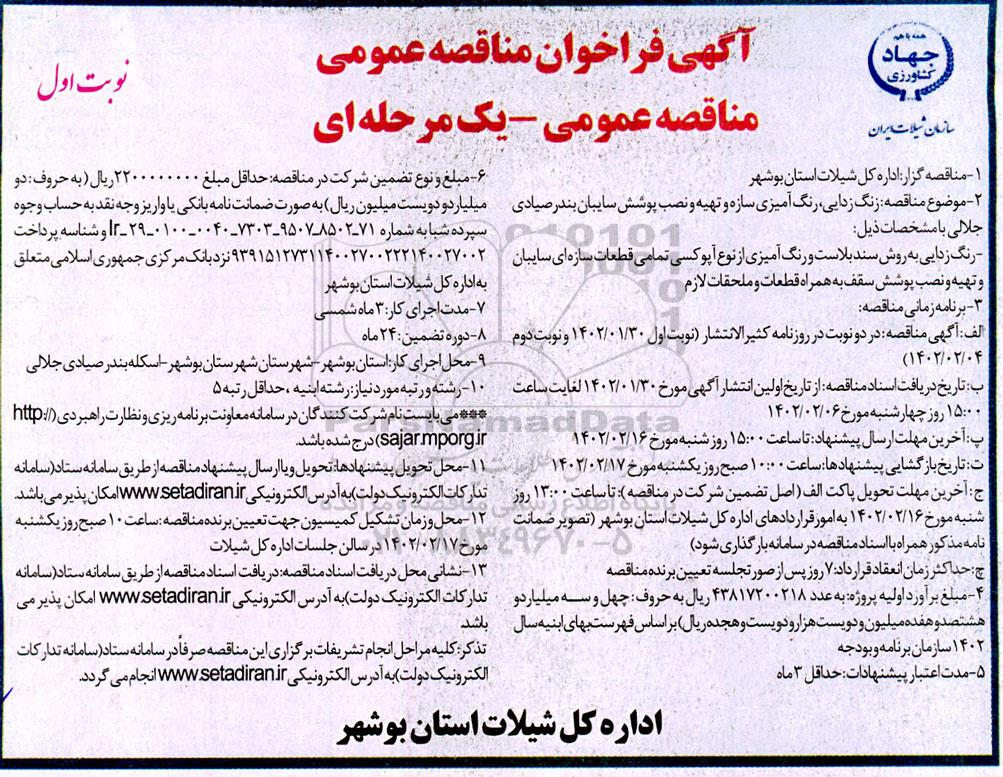 همه با هم
جهاد
کشاورزی
سازمان شیلات ایران
آگهی فراخوان مناقصه عمومی
مناقصه عمومی – یک مرحله ای
نوبت اول
۱-مناقصه گزار: اداره کل شیلات استان بوشهر
۲-موضوع مناقصه: زنگ زدایی، رنگ آمیزی سازه و تهیه و نصب پوشش سایبان بندر صیادی
جلالی با مشخصات ذیل:
-رنگ زدایی به روش سندبلاست و رنگ آمیزی از نوع آپوکسی تمامی قطعات سازه ای سایبان
و تهیه و نصب پوشش سقف به همراه قطعات و ملحقات لازم
۳-برنامه زمانی مناقصه:
الف: آگهی مناقصه: در دو نوبت در روزنامه کثیرالانتشار (نوبت اول ۱۴۰۲/۰۱/۳۰ و نوبت دوم
۱۴۰۲/۰۲/۰۴)
ب: تاریخ دریافت اسناد مناقصه: از تاریخ اولین انتشار آگهی مورخ ۱۴۰۲/۰۱/۳۰ لغایت ساعت
۱۵:۰۰ روز چهارشنبه مورخ ۱۴۰۲/۰۲/۰۶
پ: آخرین مهلت ارسال پیشنهاد: تا ساعت ۱۵:۰۰ روز شنبه مورخ ۱۴۰۲/۰۲/۱۶
ت: تاریخ بازگشایی پیشنهادها: ساعت ۱۰:۰۰ صبح روز یکشنبه مورخ ۱۴۰۲/۰۲/۱۷
ج: آخرین مهلت تحویل پاکت الف (اصل تضمین شرکت در مناقصه): تا ساعت ۱۳:۰۰ روز
شنبه مورخ ۱۴۰۲/۰۲/۱۶ به امور قراردادهای اداره کل شیلات استان بوشهر (تصویر ضمانت
نامه مذکور همراه با اسناد مناقصه در سامانه بارگذاری شود)
چ: حداکثر زمان انعقاد قرارداد: ۷ روز پس از صورتجلسه تعیین برنده مناقصه
۴-مبلغ برآورد اولیه پروژه: به عدد ۴۳۸۱۷۲۰۰۲۱۸ ریال به حروف: چهل و سه میلیارد و
هشتصد و هفده میلیون و دویست هزار و دویست و هجده ریال) براساس فهرست بهای ابنیه سال
۱۴۰۲ سازمان برنامه و بودجه
۵-مدت اعتبار پیشنهادات: حداقل ۳ ماه
۶-مبلغ و نوع تضمین شرکت در مناقصه: حداقل مبلغ ۲۲۰۰۰۰۰۰۰۰ ریال (به حروف: دو
میلیارد و دویست میلیون ریال) به صورت ضمانت نامه بانکی یا واریز وجه نقد به حساب وجوه
سپرده شبا به شماره Ir_۲۹_۰۱۰۰_۰۰۴۰_۷۳۰۳_۹۵۰۷_۸۵۰۲_۷۱ و شناسه پرداخت
۹۳۹۱۵۱۲۷۳۱۱۴۰۰۲۷۰۰۲۲۲۱۴۰۰۲۷۰۰۲ نزد بانک مرکزی جمهوری اسلامی متعلق
به اداره کل شیلات استان بوشهر
۷-مدت اجرای کار: ۳ ماه شمسی
۸-دوره تضمین: ۲۴ ماه
۹-محل اجرای کار: استان بوشهر-شهرستان شهرستان بوشهر-اسکله بندر صیادی جلالی
۱۰-رشته و رتبه مورد نیاز: رشته ابنیه، حداقل رتبه ۵
***می بایست نام شرکت کنندگان در سامانه معاونت برنامه ریزی و نظارت راهبردی (http://
sajar.mporg.ir) درج شده باشد.
۱۱-محل تحویل پیشنهادها: تحویل و یا ارسال پیشنهاد مناقصه از طریق سامانه ستاد (سامانه
تدارکات الکترونیک دولت) به آدرس الکترونیکی www.setadiran.ir امکان پذیر می باشد.
۱۲-محل و زمان تشکیل کمیسیون جهت تعیین برنده مناقصه: ساعت ۱۰ صبح روز یکشنبه
مورخ ۱۴۰۲/۰۲/۱۷ در سالن جلسات اداره کل شیلات
۱۳-نشانی محل دریافت اسناد مناقصه: دریافت اسناد مناقصه از طریق سامانه ستاد (سامانه
تدارکات الکترونیک دولت) به آدرس الکترونیکی www.setadiran.ir امکان پذیر می
باشد
تذکر: کلیه مراحل انجام تشریفات برگزاری این مناقصه صرفاً در سامانه ستاد (سامانه تدارکات
الکترونیک دولت) به آدرس الکترونیکی www.setadiran.ir انجام می گردد.
اداره کل شیلات استان بوشهر
ParsNamadData
پایگاه اطلاع رسانی مناقصه و مزایده
۰۲۱-۸۸۳۴۹۶۷۰-۵